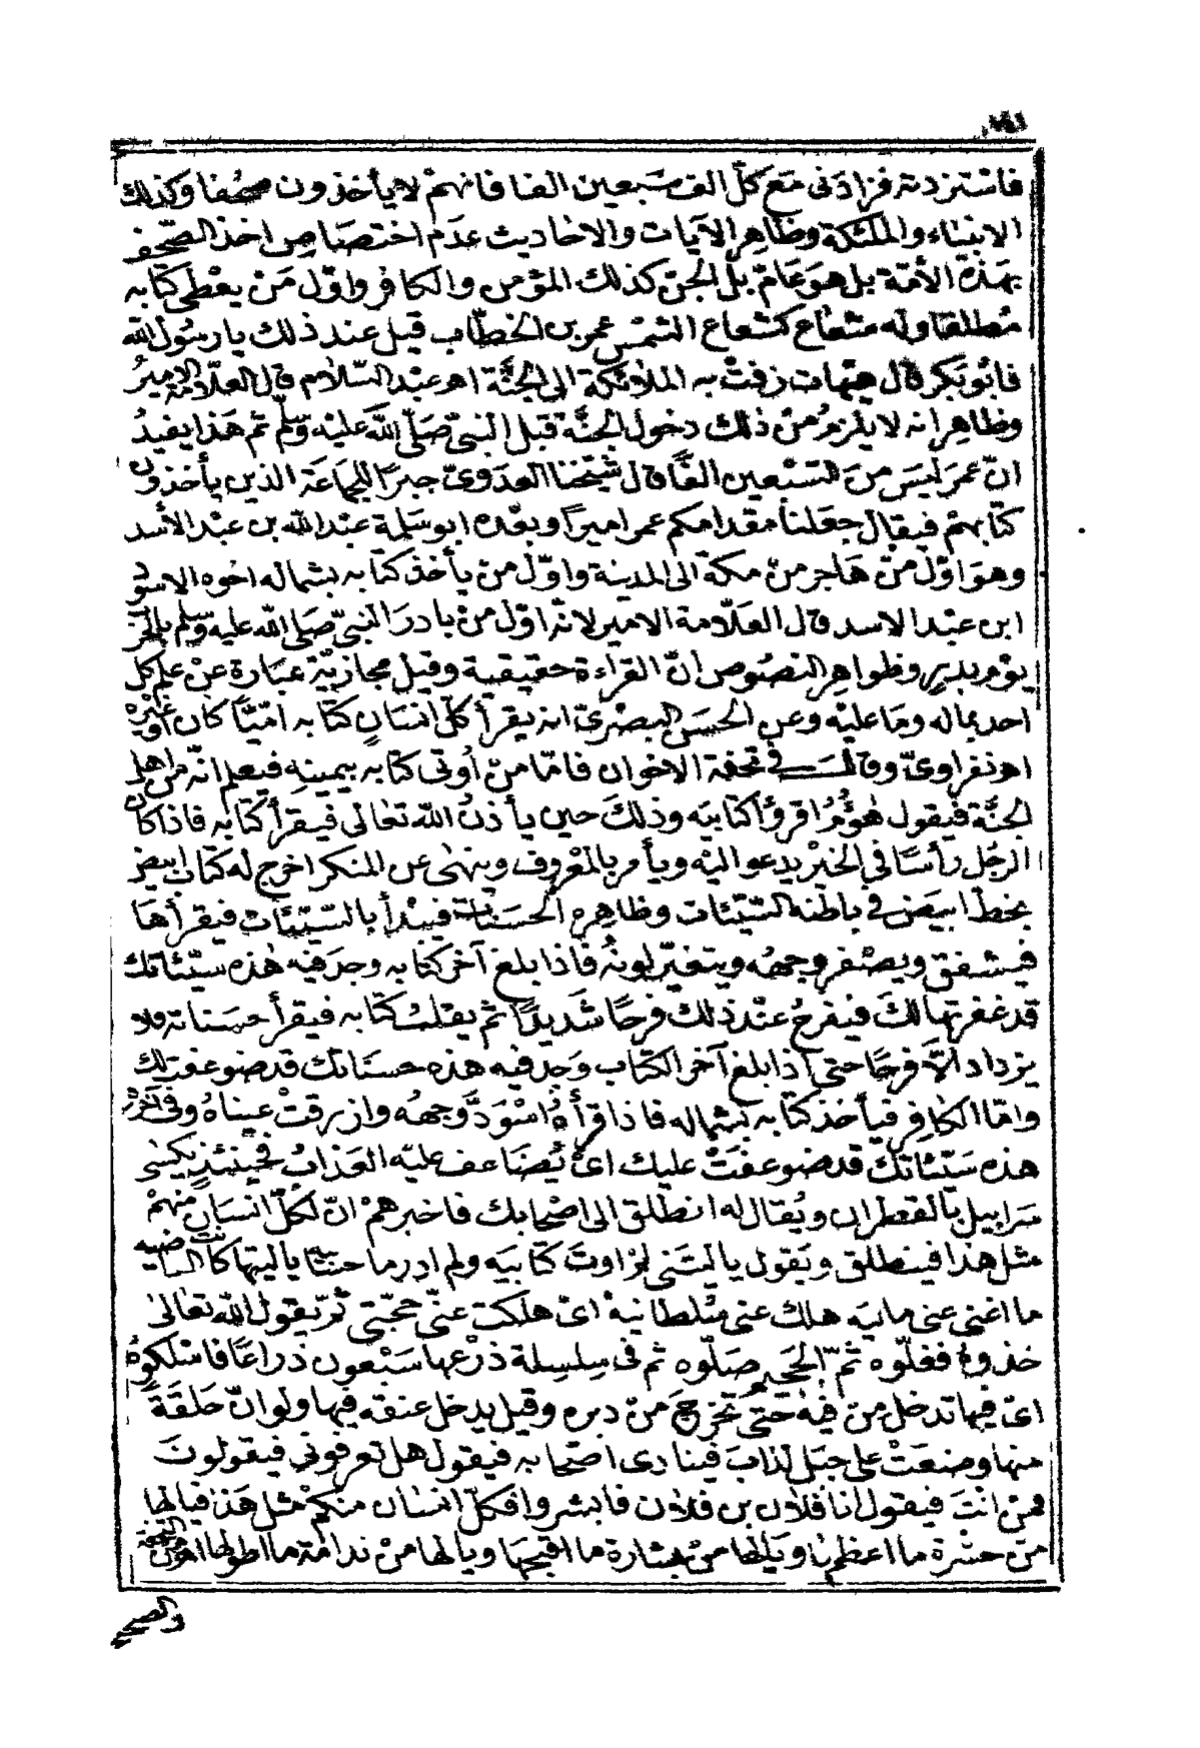 فاستزدته فزادنى مع كلّ الف سبعين الفا فانهمْ لا يأخذون صحُفا وكذلك
الانبياء والملئكة وظاهر الآيات والاحاديث عدَم اختصَاصِ اخذ الصّحف
بهَذه الأمّة بل هوَ عَامّ بل الجنّ كذلك المؤمن والكافر واوّل مَنْ يعْطى كتابه
مُطلقا وله شعَاع كشعاع الشمْس عمر بن الخطّاب قيل عند ذلك يا رسُول الله
فابُو بَكر قال هيهات زفتْ به الملائكة الى الجنَّة اهـ عبْد السّلام قال العلّامة الاميرُ
وظاهِر انه لا يلزمُ منْ ذلك دخول الجنَّة قبل النبىّ صَلّى اللهَ عليْه وسَلّم ثم هَذا يفيدُ
انّ عمرَ ليسَ منَ السَبْعين الفًا قال شيْخنا العدَوىّ جبرًا للجمَاعَة الذين يأخذون
كتابهمْ فيقال جعَلنا مقدامكم عمر اميرًا وبعْده ابو سَلمة عبْد الله بن عبْد الأسد
وهوَ اوّل منْ هَاجر منْ مكة الى المدينة واوّل منْ يأخذ كتابه بشماله اخوه الاسود
ابن عبْد الاسد قال العلّامة الامير لانّه اوّل منْ بادرَ النبىّ صَلى الله عليْه وسلم بالحرْب
يوْم بدرٍ وظواهِر النصُوص انّ القراءة حقيقية وقيل مجازيّة عبَارة عنْ علم كل
احد بماله وما عليْه وعن الحسَن البصْرىّ انه يقرأ كلّ انسَانٍ كتابه امّيًّا كان اوْ غيْره
اهـ نفراوىّ وقالــــ فى تحفة الاخوان فامّا منْ أُوتى كتابه بيمينهِ فيعلم انّه من اهل
الجنَّة فيَقول هَاؤُمُ اقرؤا كتابيَه وذلكَ حين يأذنُ الله تعَالى فيقرأ كتابه فاذا كان
الرجُل رأسًا فى الخيْر يدعو اليْه ويأمر بالمعْروف وينهَى عن المنكر اخرج له كتاب ابيض
بخطّ ابيَض فى باطنه السّيّئات وظاهِره الحسَنات فيَبْدأ بالسّيّئات فيقرأهَا
فيشفق ويصْفر وجههُ ويتغيّر لونهُ فاذا بلغ آخر كتابه وجد فيْه هٰذه سيّئاتك
قد غفرتهَا لكَ فيَفرحُ عنْد ذلك فرحًا شَديدًا ثم يقلبُ كتابه فيقرأ حسَناته فلا
يزداد الّا فرحًا حتى اذا بلغ آخر الكتاب وَجد فيه هذه حسنَاتك قد ضوعفت لك
وامّا الكافِر فيأخذ كتابه بشماله فاذا قرأهُ اسْوَدَّ وجههُ وازرقتْ عيناهُ وفى آخرْه
هذه سَيّئاتكَ قد ضوعفَتْ عليك اىْ يُضَاعف عليْه العَذابُ فحينئذٍ يكسى
سَرابيل بالقطران ويُقال له انطلق الى اصْحابك فاخبرهمْ انّ لكلّ انسَانٍ منهمْ
مثل هذا فينطلق ويَقول يا ليْتَنى لمْ اوتَ كتابيَه ولم ادرِ ما حسَابيَه يا ليتها كانت القاضيه
ما اغنى عنى ماليَه هلك عنى سُلطانيهْ اىْ هلكت عنّى حجّتى ثمّ يقول الله تعَالىٰ
خذوهُ فغلّوه ثمّ الجَحيم صَلّوه ثم فى سِلسِلة ذرْعها سَبْعون ذراعًا فاسْلكوهُ
اىْ فيها تدخل منْ فيْه حَتّى تخرجَ منْ دبره وقيل يدخل عنقه فيها ولوْ انّ حَلقَةً
منها وضعَتْ على جبَل لذابَ فينادى اصْحابه فيقول هل تعرفونى فيقولونَ
فمنْ انْتَ فيَقول انا فلان بن فلان فابشروا فكلّ انسان منكمْ مثل هَذا فيَالها
منْ حسْرة ما اعظمهَا ويَالها منْ بشارة ما اقبحهَا ويالها منْ ندَامة ما اطولها اهـ من التحفة
والصحيح